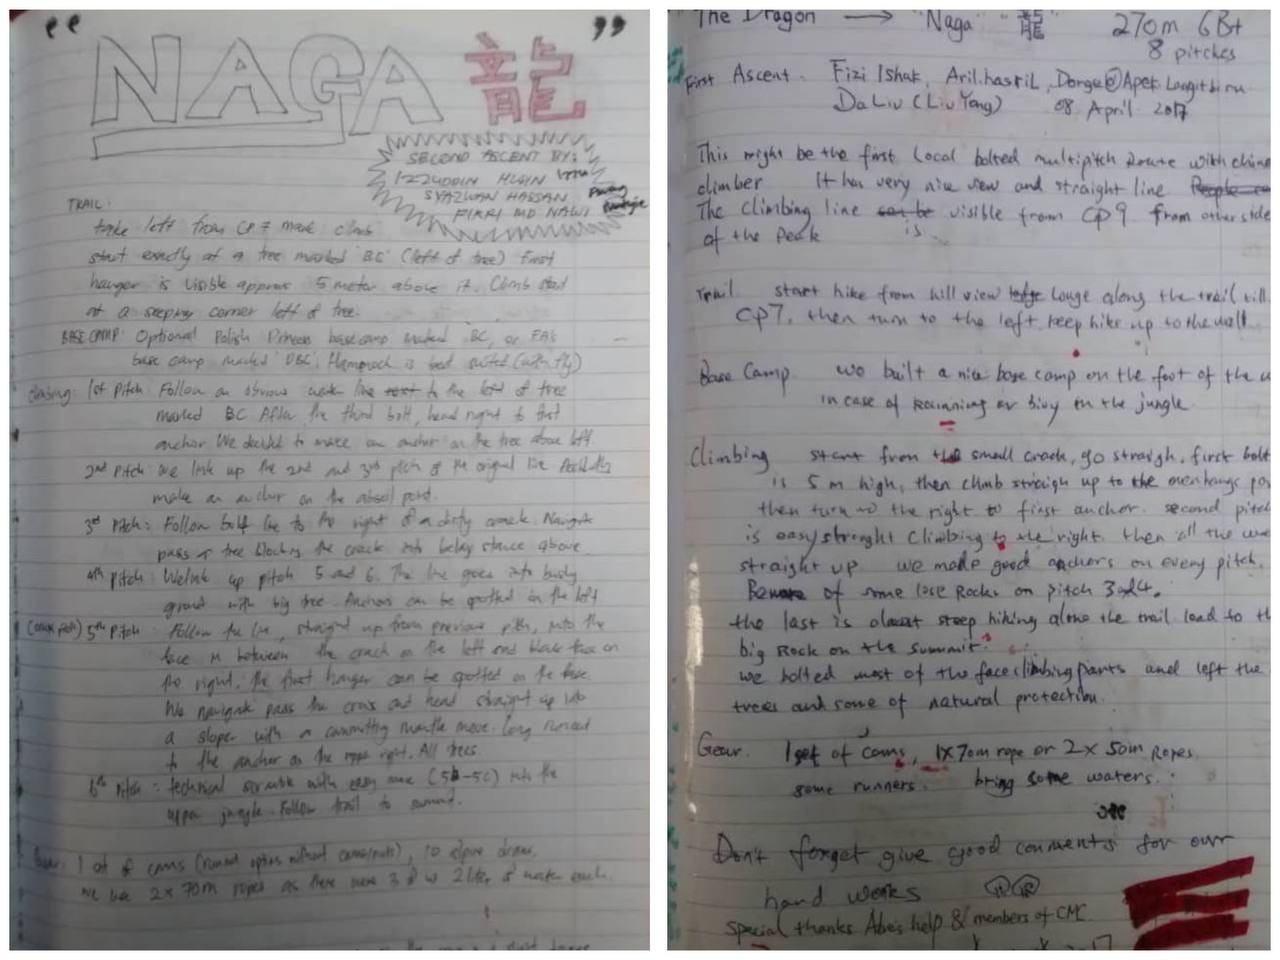 " NAGA 龍 "
SECOND ASCENT BY:
IZZUDDIN
SYAZWAN HASSAN
FIKRI MD NAWI
TRAIL:
take left from CP 7 mark climb
start exactly at a tree marked 'BC' (left of tree) First
hanger is visible approx 5 meter above it. Climb start
at a corner left of tree.
BASE CAMP: Optional Polish Princess basecamp marked BC, or FA's
base camp marked 'DBC'. Hammock is best suited (with fly)
climbing: 1st Pitch: Follow an obvious line to the left of tree
marked BC After the third bolt, head right to first
anchor We decided to make an anchor on the tree above left
2nd Pitch: we link up the 2nd and 3rd pitch of the original line
make an anchor on the point.
3rd Pitch: Follow bolt line to the right of a dirty crack. Navigate
pass a tree blocking the crack into belay stance above
4th Pitch: We link up pitch 5 and 6. The line goes into bushy
ground with big tree. Anchors can be spotted on the left
(crux pitch) 5th Pitch: Follow the line, straight up from previous pitch, into the
face in between the crack on the left and black face on
the right. The first hanger can be spotted on the face.
We navigate pass the crux and head straight up into
a sloper with a committing mantle move. Long runout
to the anchor on the upper right. All trees
6th Pitch: technical scramble with easy move (5b-5c) into the
upper jungle. Follow trail to summit.
Gear: 1 set of cams (runout option without cams/nuts), 10 alpine draws.
We use 2x 70m ropes as there were 3 of us 2 liter of water each.
The Dragon → "Naga" 龍 270m 6B+
8 pitches
First Ascent. Fizi Ishak, Aril.hasril, Dorge@Apek Langitbiru
Da Liu (Liu Yang) 08 April 2017
This might be the first Local bolted multipitch Route with chine
climber It has very nice view and straight line
The climbing line is visible from CP9 from other side
of the Peak
Trail start hike from hill view Louge along the trail till
CP7, then turn to the left keep hike up to the wall
Base Camp we built a nice base camp on the foot of the
in case of Rainning or bivy in the jungle
Climbing start from the small crack, go straigh, first bolt
is 5m high, then climb straigh up to the overhangs
then turn to the right to first anchor. second pitch
is easy straight climbing to the right. then all the
straight up we made good anchors on every pitch.
Beware of some lose Rocks on pitch 3 and 4.
the last is almost steep hiking alone the trail lead to th
big Rock on the summit.
we bolted most of the face climbing parts and left the
trees and some of natural protection.
Gear. 1 set of cams, 1x70m rope or 2x50m Ropes
some runners. bring some waters.
Don't forget give good comments for our
hand works
special thanks Abe's help & members of CMC